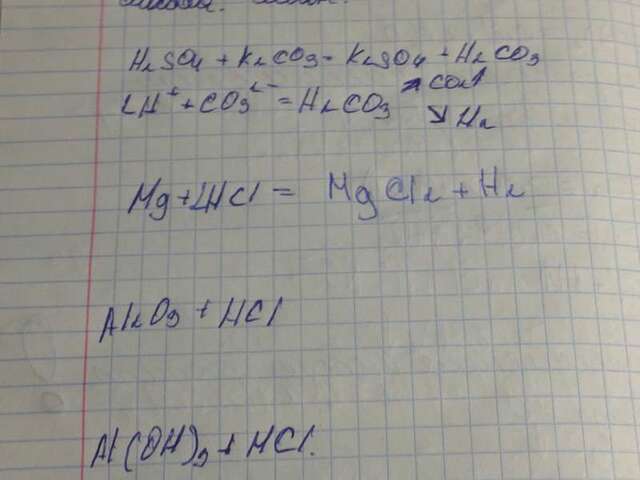 H₂SO₄ + K₂CO₃ = K₂SO₄ + H₂CO₃
2H⁺ + CO₃²⁻ = H₂CO₃ ↗ CO₂↑ ↘ H₂
Mg + 2HCl = MgCl₂ + H₂
Al₂O₃ + HCl
Al(OH)₃ + HCl.